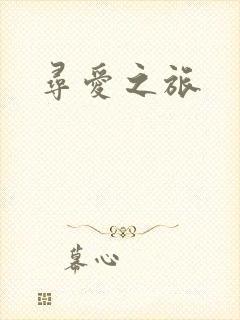 尋愛之旅
幕心